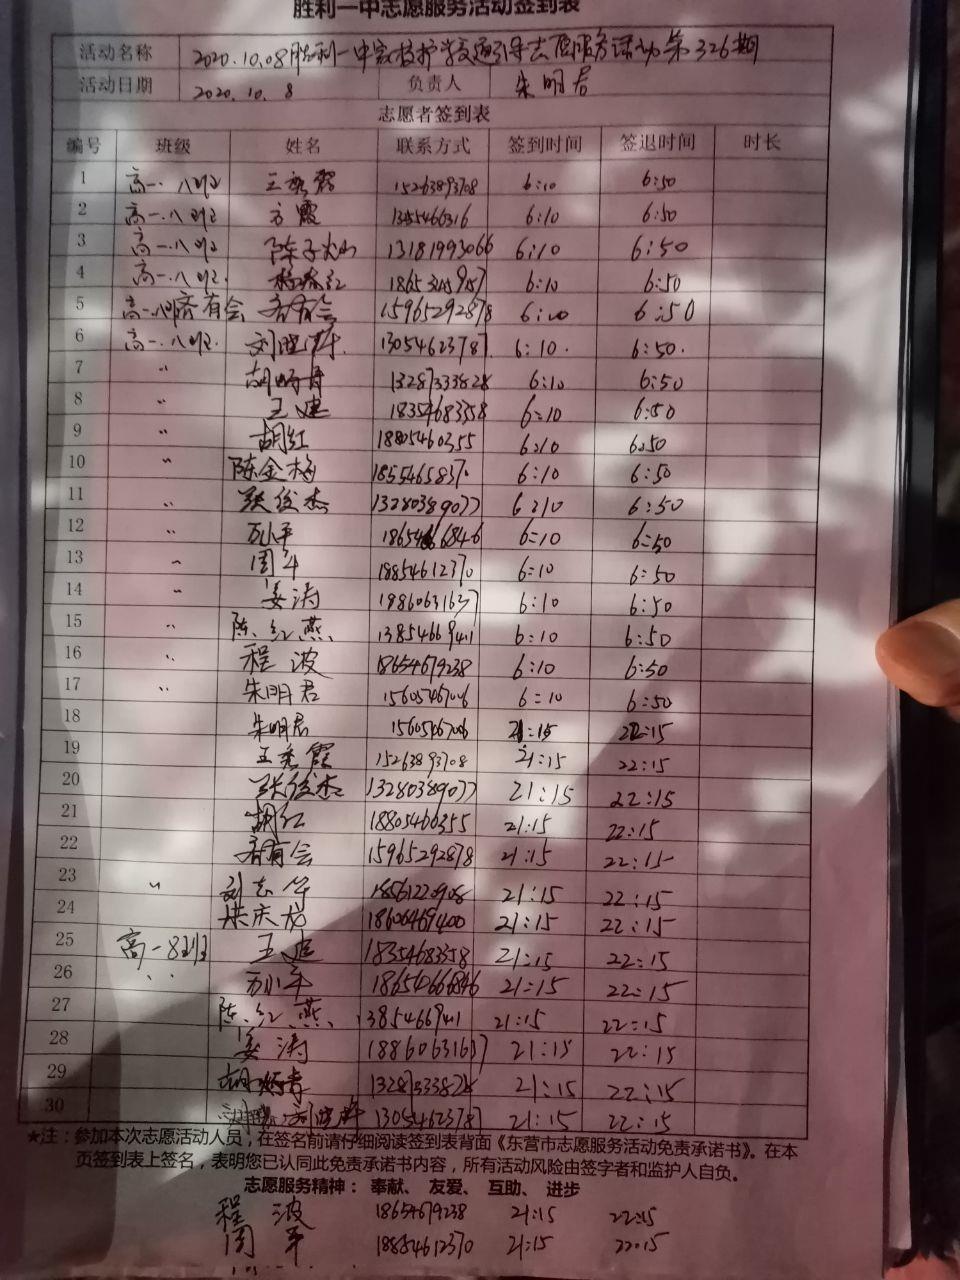 胜利一中志愿服务活动签到表
活动名称 2020.10.08胜利一中家校护学交通引导志愿服务活动第326期
活动日期 2020.10.8 负责人 朱明君
志愿者签到表
编号 班级 姓名 联系方式 签到时间 签退时间 时长
1 高一.八班 王秀霞 15263893708 6:10 6:50
2 高一.八班 方霞 6:10 6:50
3 高一.八班 13181993066 6:10 6:50
4 高一.八班. 6:10 6:50
5 齐有会 齐有会 15965292878 6:10 6:50
6 高一.八班. 13054623787 6:10. 6:50.
7 〃 13287333828 6:10 6:50
8 〃 18354683358 6:10 6:50
9 〃 胡红 18805460355 6:10 6:50
10 〃 陈金梅 18554658370 6:10 6:50
11 〃 张俊杰 13280389077 6:10 6:50
12 〃 6:10 6:50
13 〃 周军 18854612370 6:10 6:50
14 〃 姜涛 18860631637 6:10 6:50
15 〃 陈红燕 13854669411 6:10 6:50
16 〃 程波 18654679238 6:10 6:50
17 〃 朱明君 15605467006 6:10 6:50
18 朱明君 21:15 22:15
19 王秀霞 15263893708 21:15 22:15
20 张俊杰 13280389077 21:15 22:15
21 胡红 18805460355 21:15 22:15
22 齐有会 15965292878 21:15 22:15
23 〃 刘志华 18561220908 21:15 22:15
24 洪庆龙 18606469400 21:15 22:15
25 高一8班 18354683358 21:15 22:15
26 〃 21:15 22:15
27 陈红燕 21:15 22:15
28 姜涛 18860631637 21:15 22:15
29 21:15 22:15
30 13054623787 21:15 22:15
★注：参加本次志愿活动人员，在签名前请仔细阅读签到表背面《东营市志愿服务活动免责承诺书》。在本
页签到表上签名，表明您已认同此免责承诺书内容，所有活动风险由签字者和监护人自负。
志愿服务精神： 奉献、 友爱、 互助、 进步
程波 18654679238 21:15 22:15
周军 18854612370 21:15 22:15